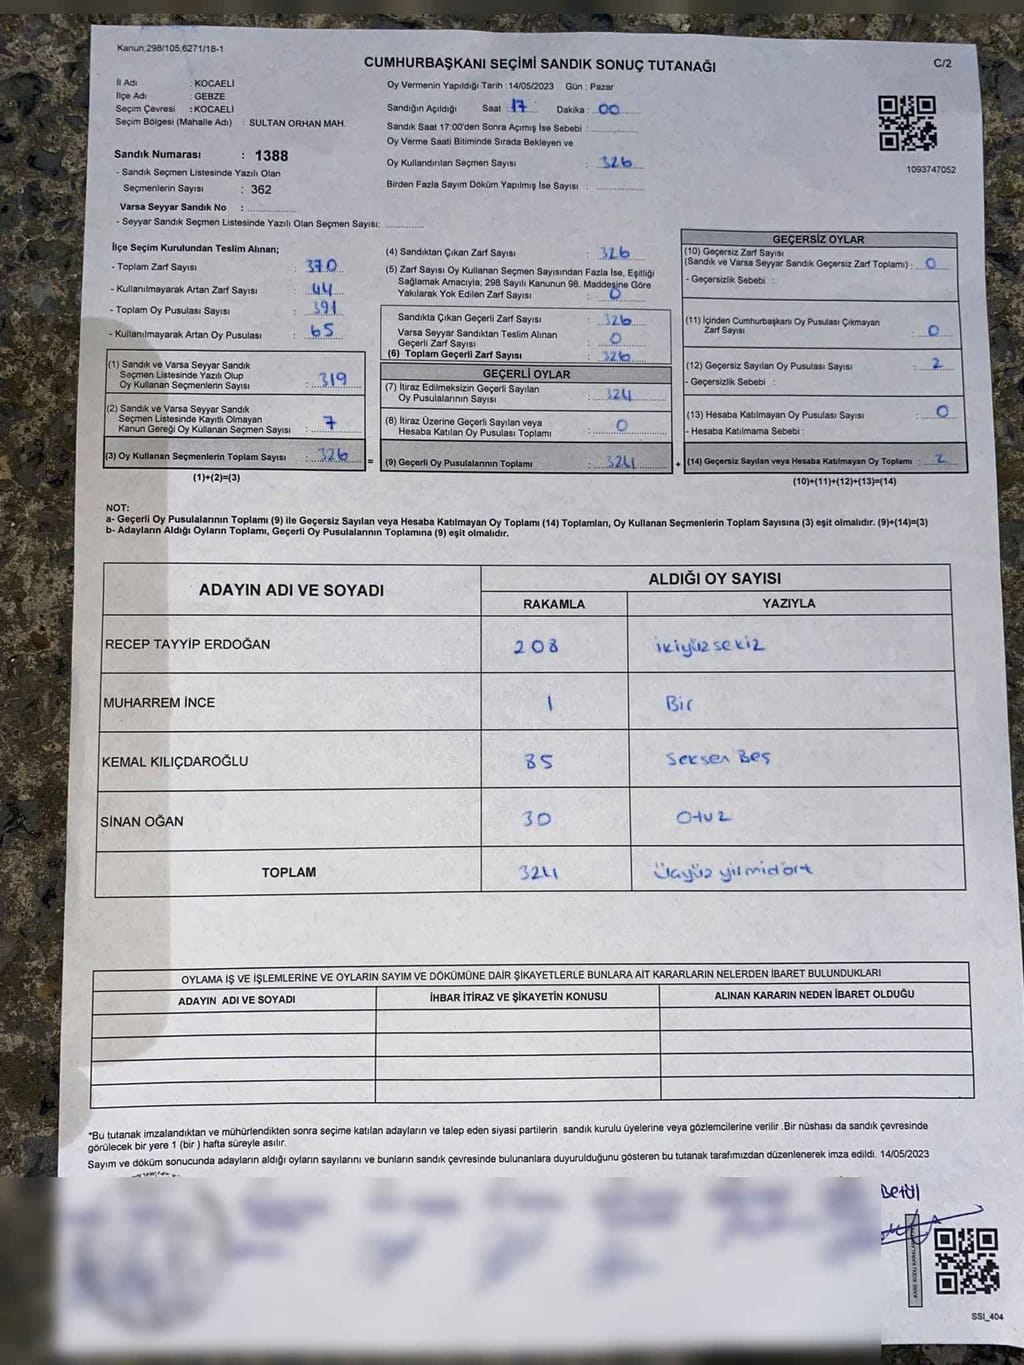 Kanun:298/105,6271/18-1
CUMHURBAŞKANI SEÇİMİ SANDIK SONUÇ TUTANAĞI
C/2
İl Adı : KOCAELİ
İlçe Adı : GEBZE
Seçim Çevresi : KOCAELİ
Seçim Bölgesi (Mahalle Adı) : SULTAN ORHAN MAH.
Sandık Numarası : 1388
- Sandık Seçmen Listesinde Yazılı Olan
Seçmenlerin Sayısı : 362
Varsa Seyyar Sandık No : ..............
- Seyyar Sandık Seçmen Listesinde Yazılı Olan Seçmen Sayısı: ..............
Oy Vermenin Yapıldığı Tarih :14/05/2023 Gün : Pazar
Sandığın Açıldığı Saat : 17 Dakika : 00
Sandık Saat 17:00'den Sonra Açımış İse Sebebi : ..............
Oy Verme Saati Bitiminde Sırada Bekleyen ve
Oy Kullandırılan Seçmen Sayısı : 326
Birden Fazla Sayım Döküm Yapılmış İse Sayısı : ..............
1093747052
İlçe Seçim Kurulundan Teslim Alınan;
- Toplam Zarf Sayısı : 370
- Kullanılmayarak Artan Zarf Sayısı : 44
- Toplam Oy Pusulası Sayısı : 391
- Kullanılmayarak Artan Oy Pusulası : 65
(1) Sandık ve Varsa Seyyar Sandık
Seçmen Listesinde Yazılı Olup
Oy Kullanan Seçmenlerin Sayısı : 319
(2) Sandık ve Varsa Seyyar Sandık
Seçmen Listesinde Kayıtlı Olmayan
Kanun Gereği Oy Kullanan Seçmen Sayısı : 7
(3) Oy Kullanan Seçmenlerin Toplam Sayısı : 326
(1)+(2)=(3)
=
(4) Sandıktan Çıkan Zarf Sayısı : 326
(5) Zarf Sayısı Oy Kullanan Seçmen Sayısından Fazla İse, Eşitliği
Sağlamak Amacıyla; 298 Sayılı Kanunun 98. Maddesine Göre
Yakılarak Yok Edilen Zarf Sayısı : 0
Sandıkta Çıkan Geçerli Zarf Sayısı : 326
Varsa Seyyar Sandıktan Teslim Alınan
Geçerli Zarf Sayısı : 0
(6) Toplam Geçerli Zarf Sayısı : 326
GEÇERLİ OYLAR
(7) İtiraz Edilmeksizin Geçerli Sayılan
Oy Pusulalarının Sayısı : 324
(8) İtiraz Üzerine Geçerli Sayılan veya
Hesaba Katılan Oy Pusulası Toplamı : 0
(9) Geçerli Oy Pusulalarının Toplamı : 324
+
GEÇERSİZ OYLAR
(10) Geçersiz Zarf Sayısı
(Sandık ve Varsa Seyyar Sandık Geçersiz Zarf Toplamı) : 0
- Geçersizlik Sebebi :
(11) İçinden Cumhurbaşkanı Oy Pusulası Çıkmayan
Zarf Sayısı : 0
(12) Geçersiz Sayılan Oy Pusulası Sayısı : 2
- Geçersizlik Sebebi :
(13) Hesaba Katılmayan Oy Pusulası Sayısı : 0
- Hesaba Katılmama Sebebi :
(14) Geçersiz Sayılan veya Hesaba Katılmayan Oy Toplamı : 2
(10)+(11)+(12)+(13)=(14)
NOT:
a- Geçerli Oy Pusulalarının Toplamı (9) ile Geçersiz Sayılan veya Hesaba Katılmayan Oy Toplamı (14) Toplamları, Oy Kullanan Seçmenlerin Toplam Sayısına (3) eşit olmalıdır. (9)+(14)=(3)
b- Adayların Aldığı Oyların Toplamı, Geçerli Oy Pusulalarının Toplamına (9) eşit olmalıdır.
ADAYIN ADI VE SOYADI
ALDIĞI OY SAYISI
RAKAMLA YAZIYLA
RECEP TAYYİP ERDOĞAN 208 ikiyüzsekiz
MUHARREM İNCE 1 Bir
KEMAL KILIÇDAROĞLU 85 Seksen Beş
SİNAN OĞAN 30 Otuz
TOPLAM 324 Üçyüz yirmidört
OYLAMA İŞ VE İŞLEMLERİNE VE OYLARIN SAYIM VE DÖKÜMÜNE DAİR ŞİKAYETLERLE BUNLARA AİT KARARLARIN NELERDEN İBARET BULUNDUKLARI
ADAYIN ADI VE SOYADI İHBAR İTİRAZ VE ŞİKAYETİN KONUSU ALINAN KARARIN NEDEN İBARET OLDUĞU
*Bu tutanak imzalandıktan ve mühürlendikten sonra seçime katılan adayların ve talep eden siyasi partilerin sandık kurulu üyelerine veya gözlemcilerine verilir .Bir nüshası da sandık çevresinde
görülecek bir yere 1 (bir ) hafta süreyle asılır.
Sayım ve döküm sonucunda adayların aldığı oyların sayılarını ve bunların sandık çevresinde bulunanlara duyurulduğunu gösteren bu tutanak tarafımızdan düzenlenerek imza edildi. 14/05/2023
Betül
SSI_404